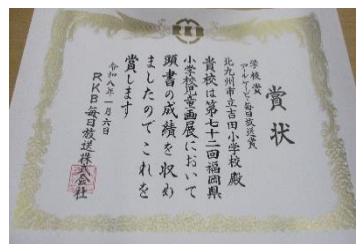 RKB
賞状
学校賞
アールケービー毎日放送賞
北九州市立吉田小学校 殿
貴校は第七十二回福岡県
小学校児童画展において
顕書の成績を収め
ましたのでこれを
賞します
令和八年一月六日
RKB毎日放送株式会社